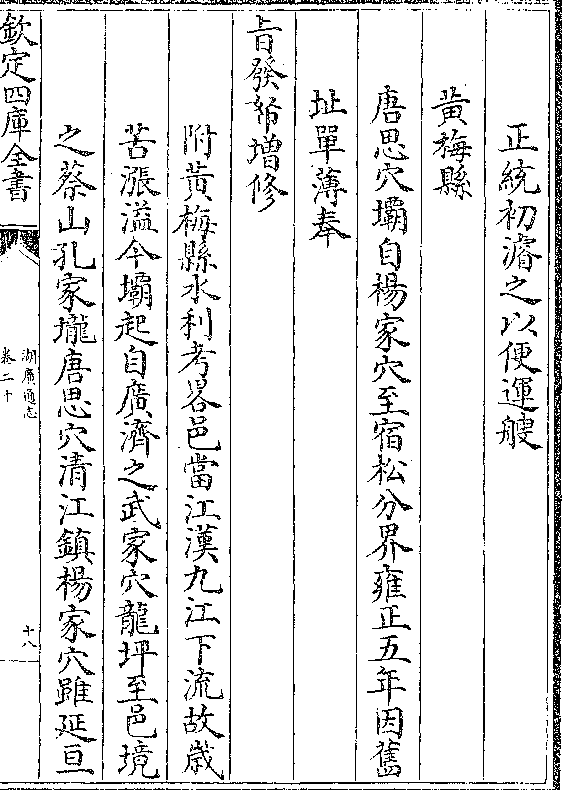 正統初濬之以便運艘
黄梅縣
唐思穴壩自楊家穴至宿松分界雍正五年因舊
址單薄奉
旨發帑增修
附黄梅縣水利考畧邑當江漢九江下流故歳
苦漲溢今壩起自廣濟之武家穴龍坪至邑境
之蔡山孔家壠唐思穴清江鎮楊家穴雖延亘
欽定四庫全書
湖廣通志
卷二十
十八